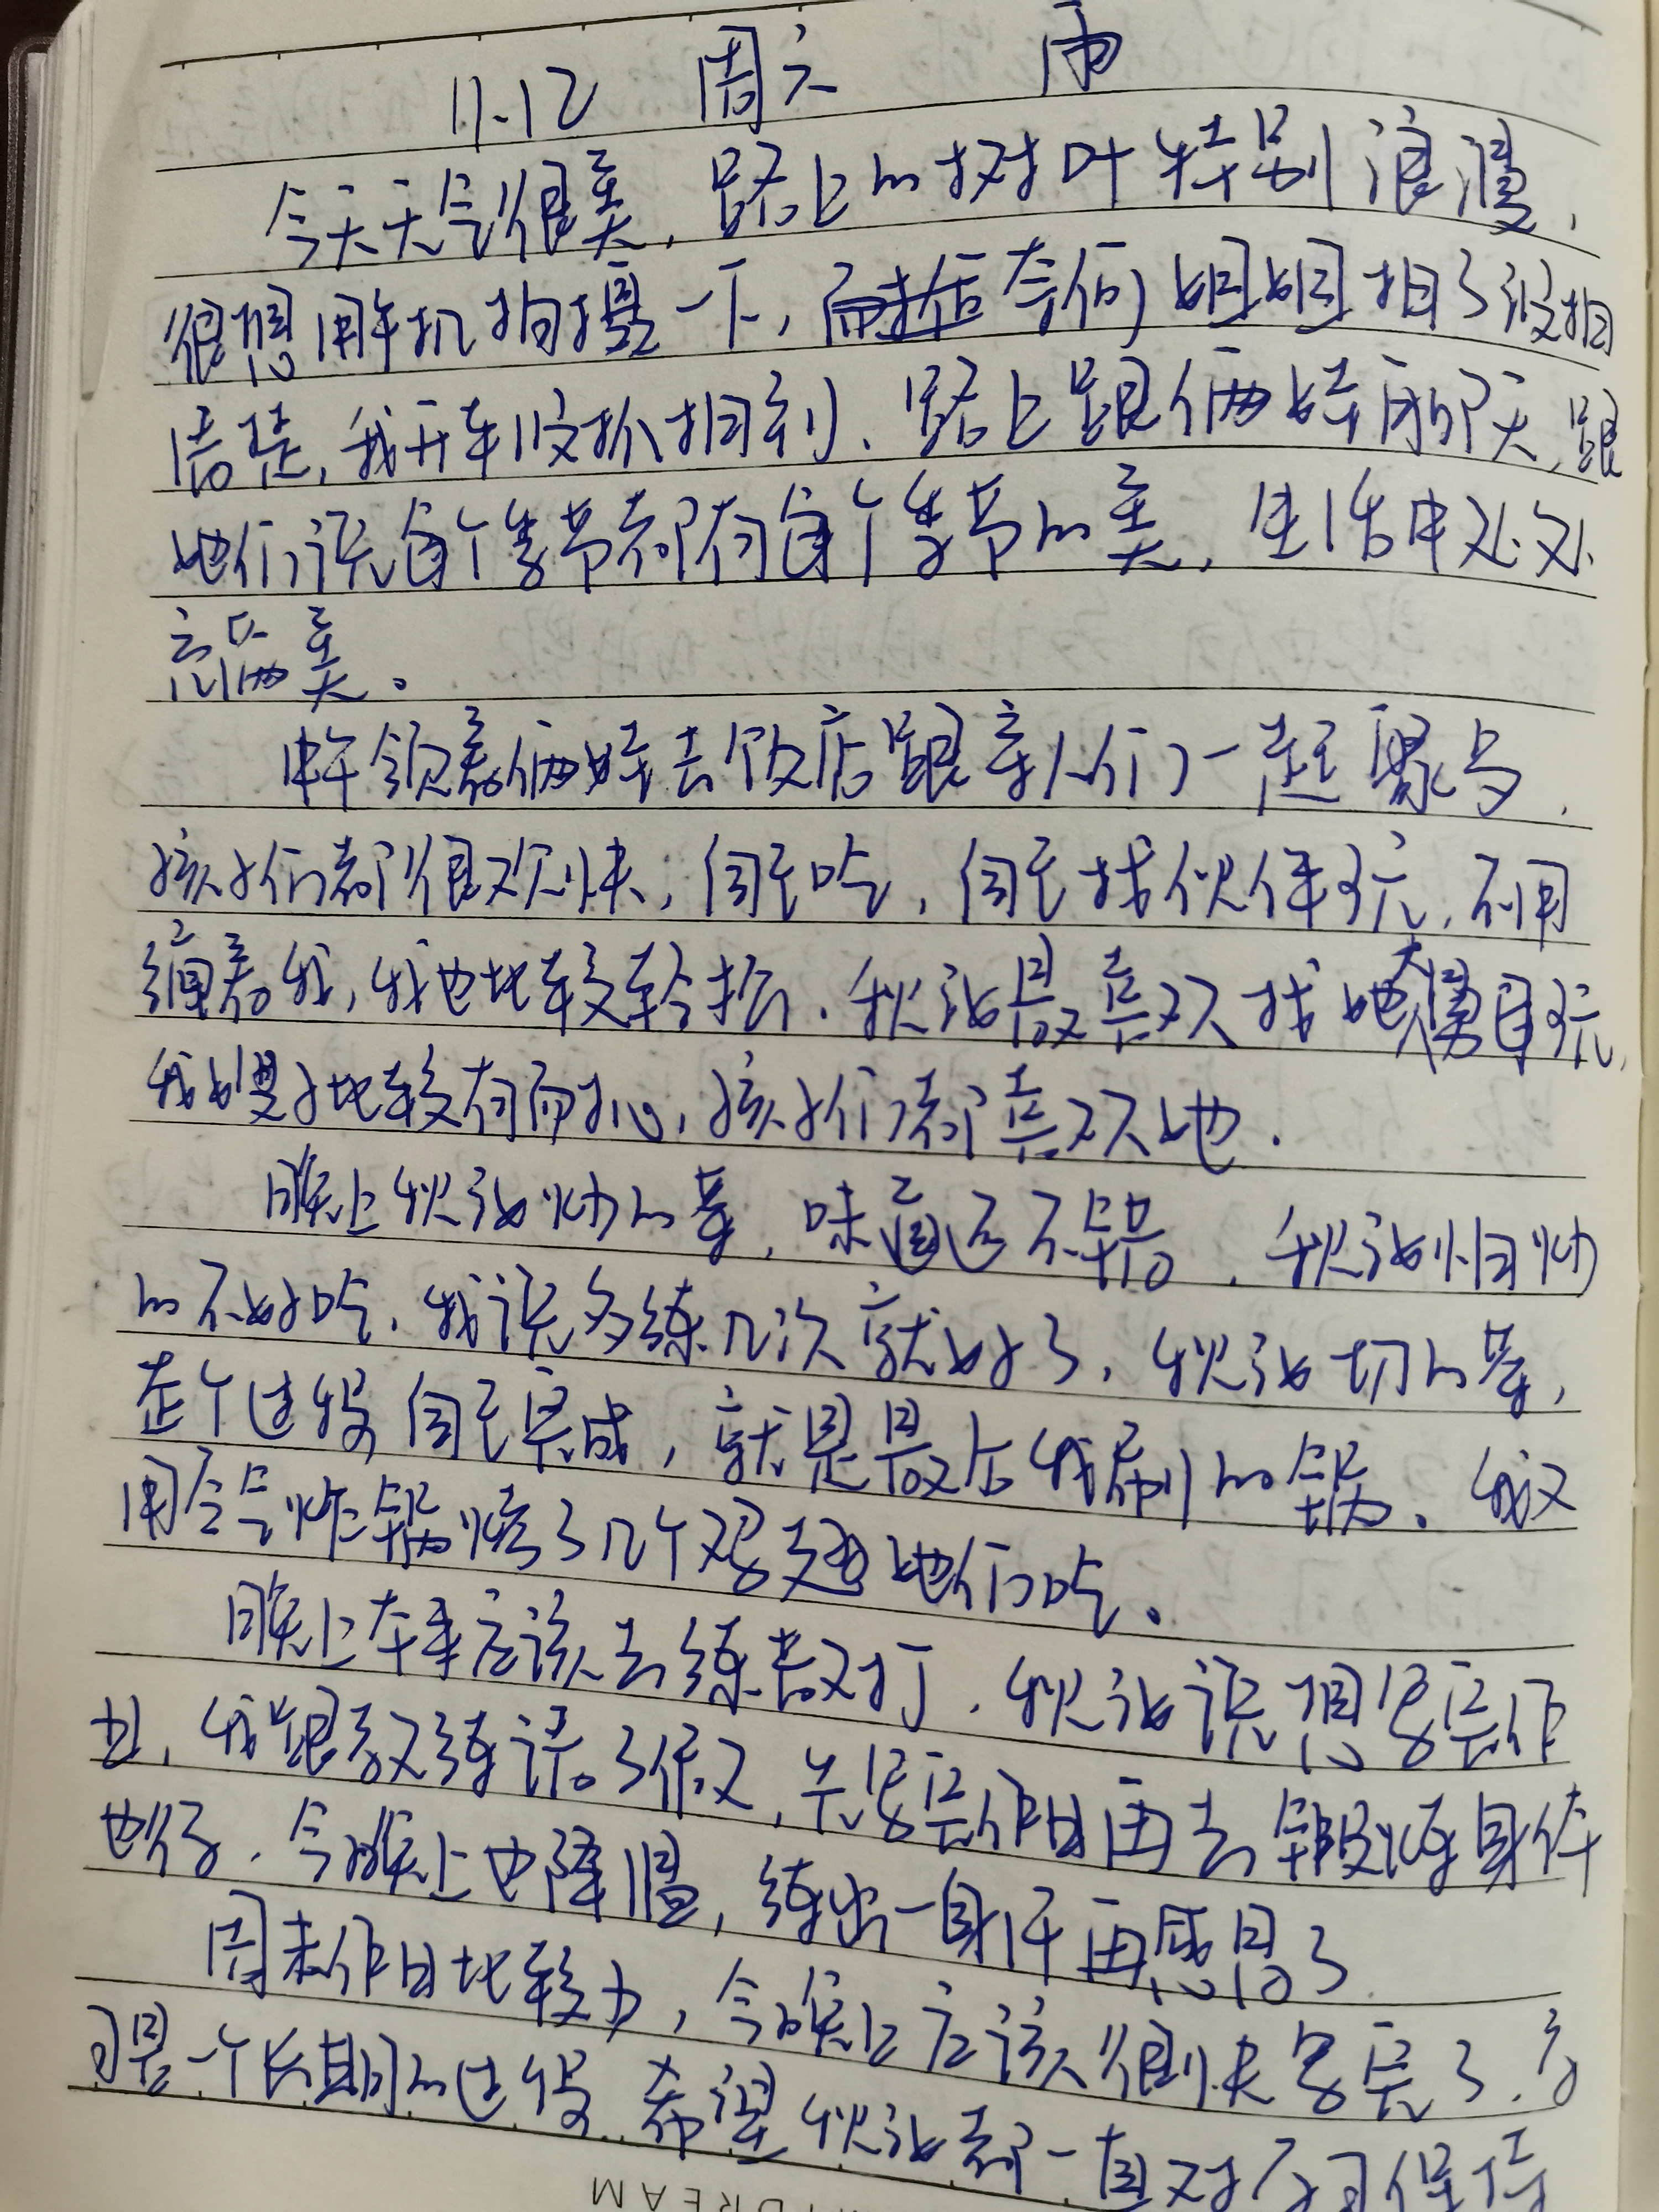 11.12 周六 雨
今天天气很美，路上的树叶特别浪漫，
很想用手机拍摄一下，奈何姐姐拍了没拍
清楚，我开车没抓拍到．路上跟俩娃聊天，跟
她们说每个季节都有每个季节的美，生活中处处
充满美。
中午领着俩娃去饭店跟亲人们一起聚与，
孩子们都很欢快，自己吃，自己找伙伴玩，不用
缠着我，我也比较轻松．秋泓最喜欢找她大舅目玩，
我嫂子比较有耐心，孩子们都喜欢她．
晚上秋泓炒的菜，味道还不错．秋泓怕炒
的不好吃．我说多练几次就好了，秋泓切的菜，
整个过程自己完成，就是最后我刷的锅．我又
用空气炸锅烤了几个翅给她们吃。
晚上本来应该去练苦双打．秋泓说想写完作
业，我跟教练请了假，先写完作业再去锻炼身体
也行．今晚上也降温，练出一身汗再感冒了
周末作业比较少，今晚上应该很快写完了．学
习是一个长期的过程 希望秋泓都一直对学习保持
DREAM